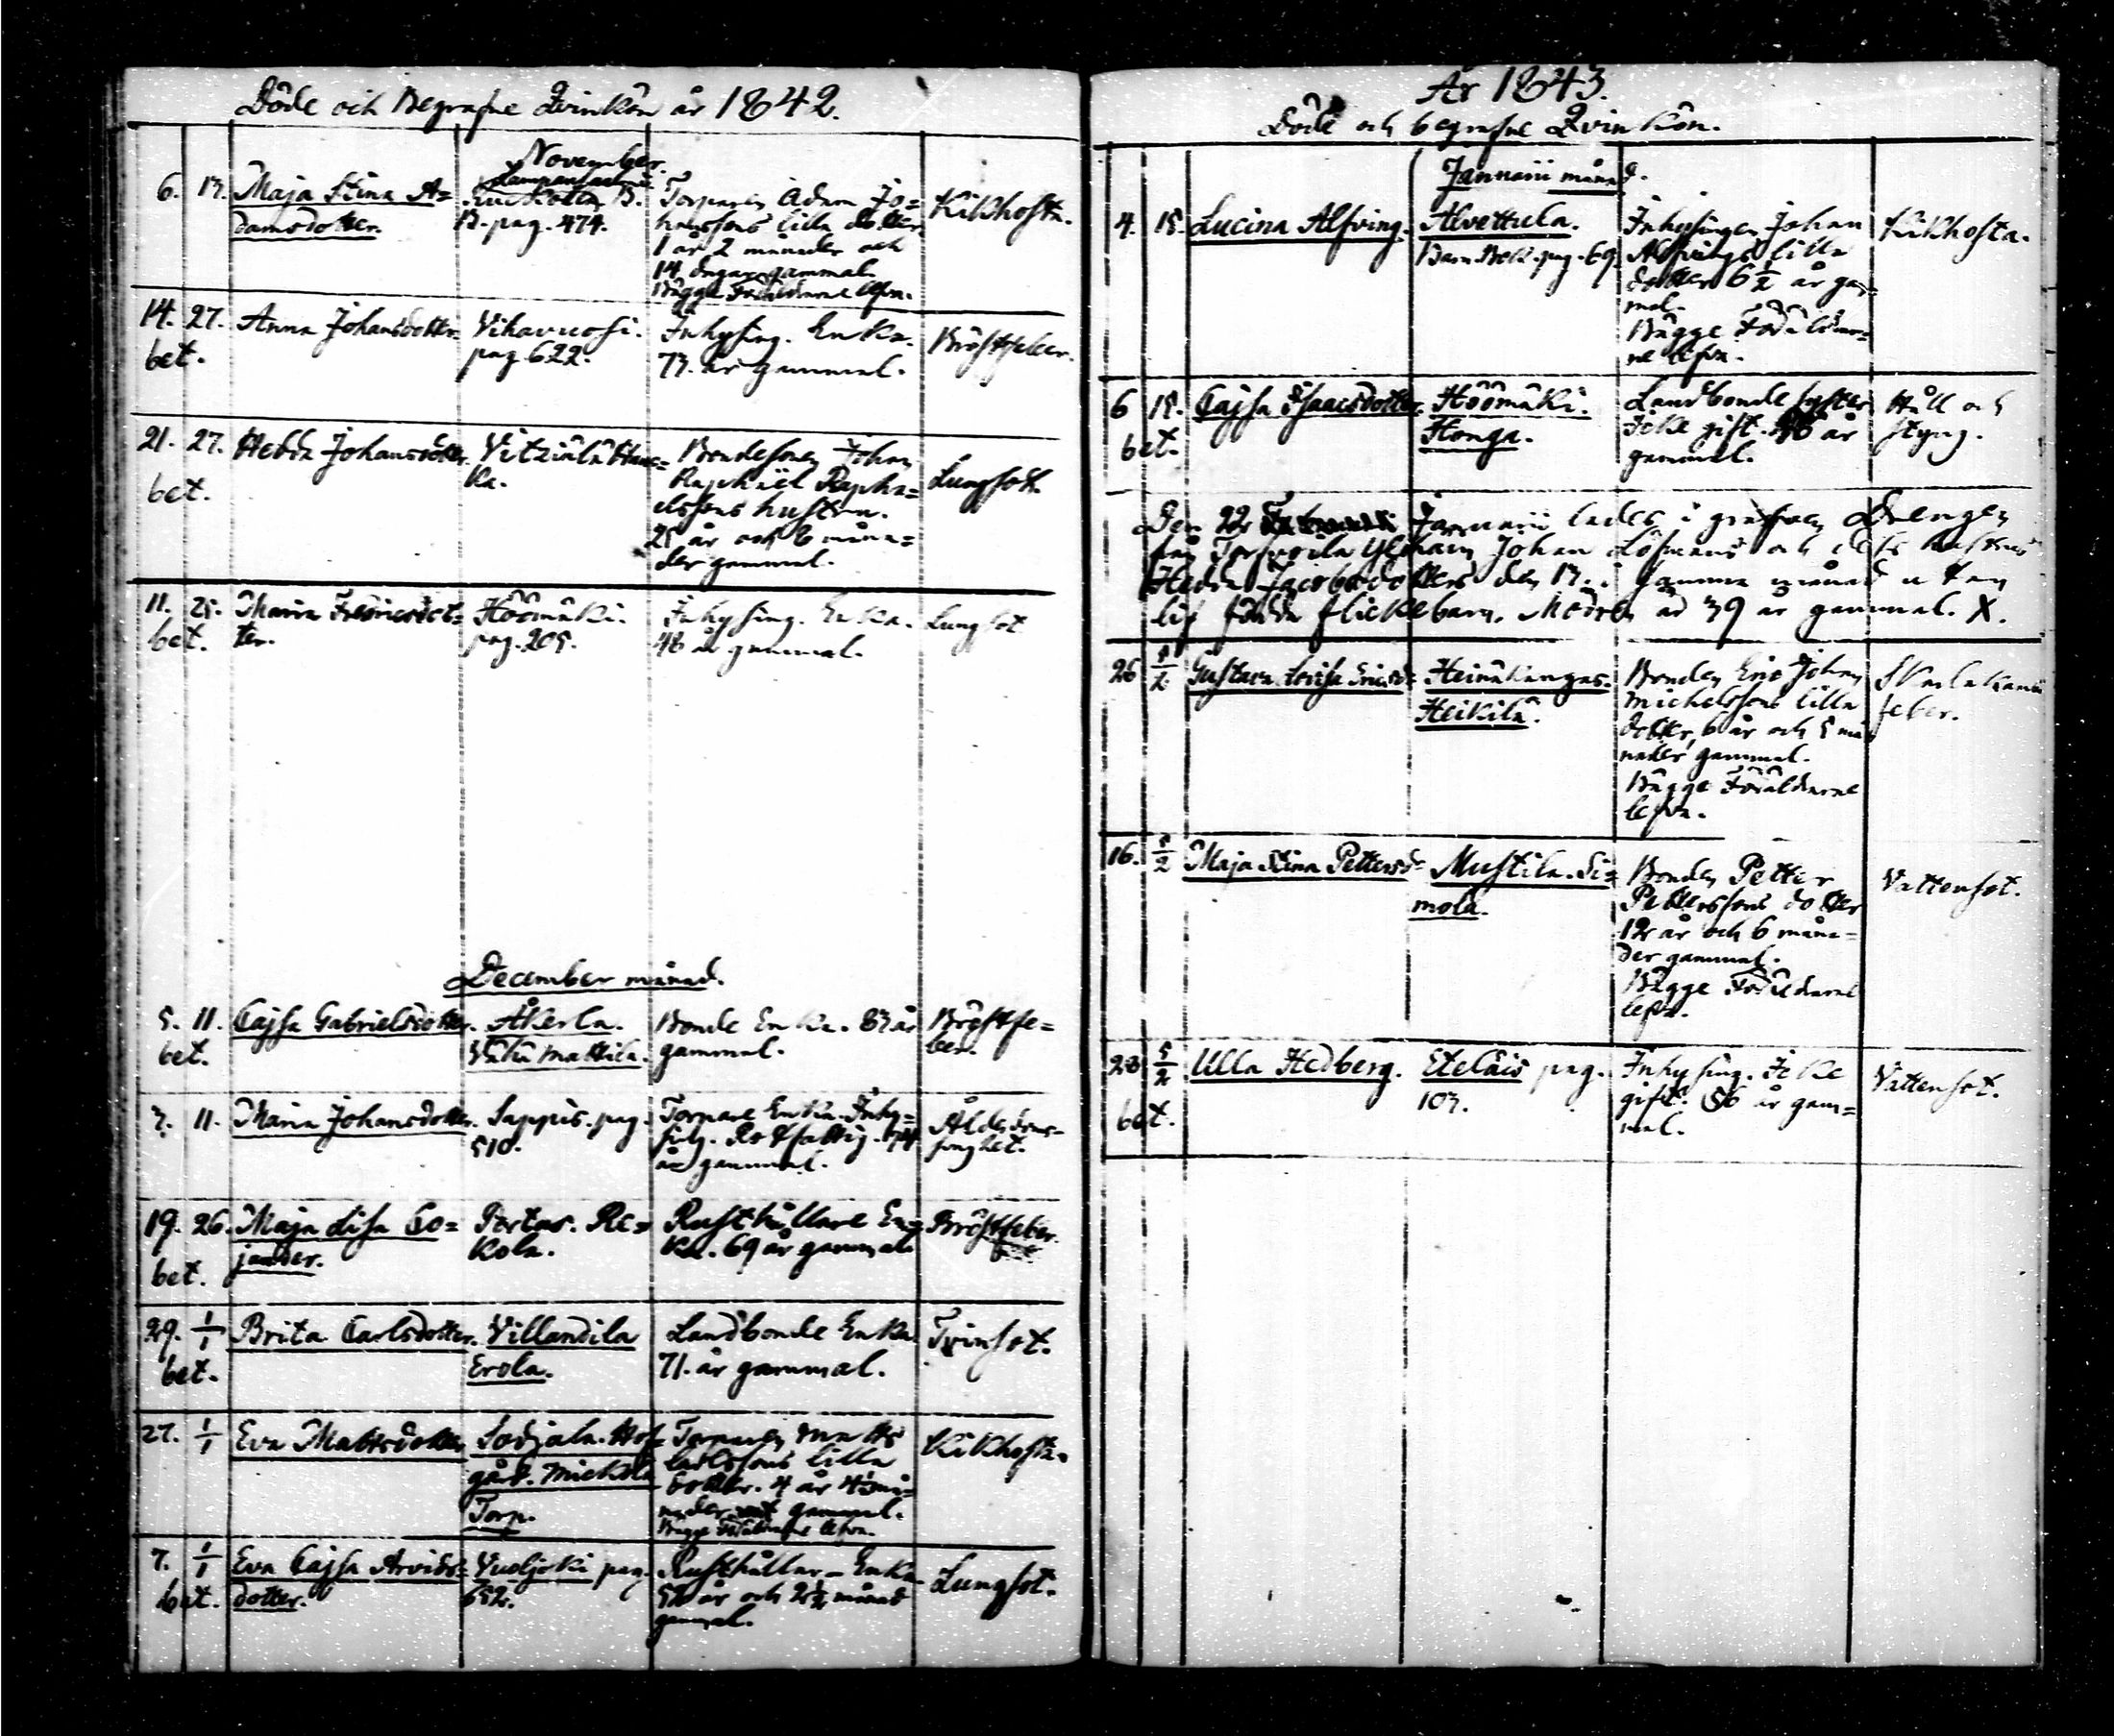 Döde och Begrafne Qvinkön år 1842.
November.
6. 13. Maja Stina A=
damsdotter.
B. pag. 474.
Torparen Adam Jo=
hanssons lilla dotter
1 år 2 månader och
14 dagar gammal.
Bägge Föräldrarne lefva.
Kikhosta.
14. 27. Anna Johansdotter.
bet.
Vihavuosi.
pag 622.
Inhysing. Enka.
73. år gammal.
Bröstfeber.
21. 27. Hedda Johansdotter.
bet.
Bondesonen Johan
Raphael Rapha=
elssons hustru.
25 år och 8 måna=
der gammal.
Lungsot.
11. 25. Maria Fredricsdot=
bet. ter.
Höömäki.
pag. 205.
Inhysing. Enka.
48 år gammal.
Lungsot
December månad.
5. 11. Cajsa Gabrielsdotter.
bet.
Åkerla.
Vähä Mattila.
Bonde Enka. 83 år
gammal.
Bröstfe=
ber.
7. 11. Maria Johansdotter.
Sappis. pag.
510.
Torpare Enka. Inhy=
sing. Rotfattig.
år gammal.
Ålderdoms-
19. 26. Maja Lisa Co=
bet. jander.
Pertas. Re=
kola.
Rusthållare En=
ka. 69 år gammal.
Bröstfeber.
29. 1/1 Brita Carlsdotter.
bet.
Villandila
Erola.
Landbonde Enka.
71. år gammal.
Tvinsot.
27. 1/1 Eva Mattsdotter
Sodjala. Hof=
gård. Mickola
Torp.
Torparen Matts
Carlssons lilla
dotter. 4 år 4½ må=
nader gammal.
Bägge Föräldrarne lefva.
Kikhosta.
7. 1/1 Eva Cajsa Arvids=
bet. dotter.
Vuoljoki pag.
652.
Rusthållar-Enka
52 år och 2½ månad
gammal.
Lungsot.
År 1843.
Döde och begrafne Qvinkön.
Januarii månad.
4. 15. Lucina Alfving.
Alvettula.
Barn Bok. pag. 69.
Inhysingen Johan
Alfvings lilla
dotter 6½ år gam=
mal.
Bägge Föräldrar=
ne lefva.
Kikhosta.
6 15. Cajsa Isaacsdotter.
bet.
Höömäki.
Honga.
Landbonde syster
Icke gift. år
gammal.
Håll och
styng.
Den 22 Januarii lades i grafven Drengen
från Johan Löfmans och dess hustrus
Hedda Jacobsdotters den 13. i samma månad utan
lif födda flickebarn. Modren är 39 år gammal. X.
26 5/2 Gustava Lovisa Ericsd=
Heinäkangas.
Heikilä.
Bonden Eric Johan
Michelssons lilla
dotter, 6 år och 5 må
nader gammal.
Bägge Föräldrarne
lefva.
Skarlakans
feber.
16. 5/2 Maja Stina Pettersd=
Mustila. Si=
mola.
Bonden Petter
Petterssons dotter
12 år och 6 måna=
der gammal.
Bägge Föräldrarne
lefva.
Vattensot.
28 5/2 Ulla Hedberg.
bet.
Eteläis pag.
103.
Inhysing. Icke
gift. 56 år gam=
mal.
Vattensot.